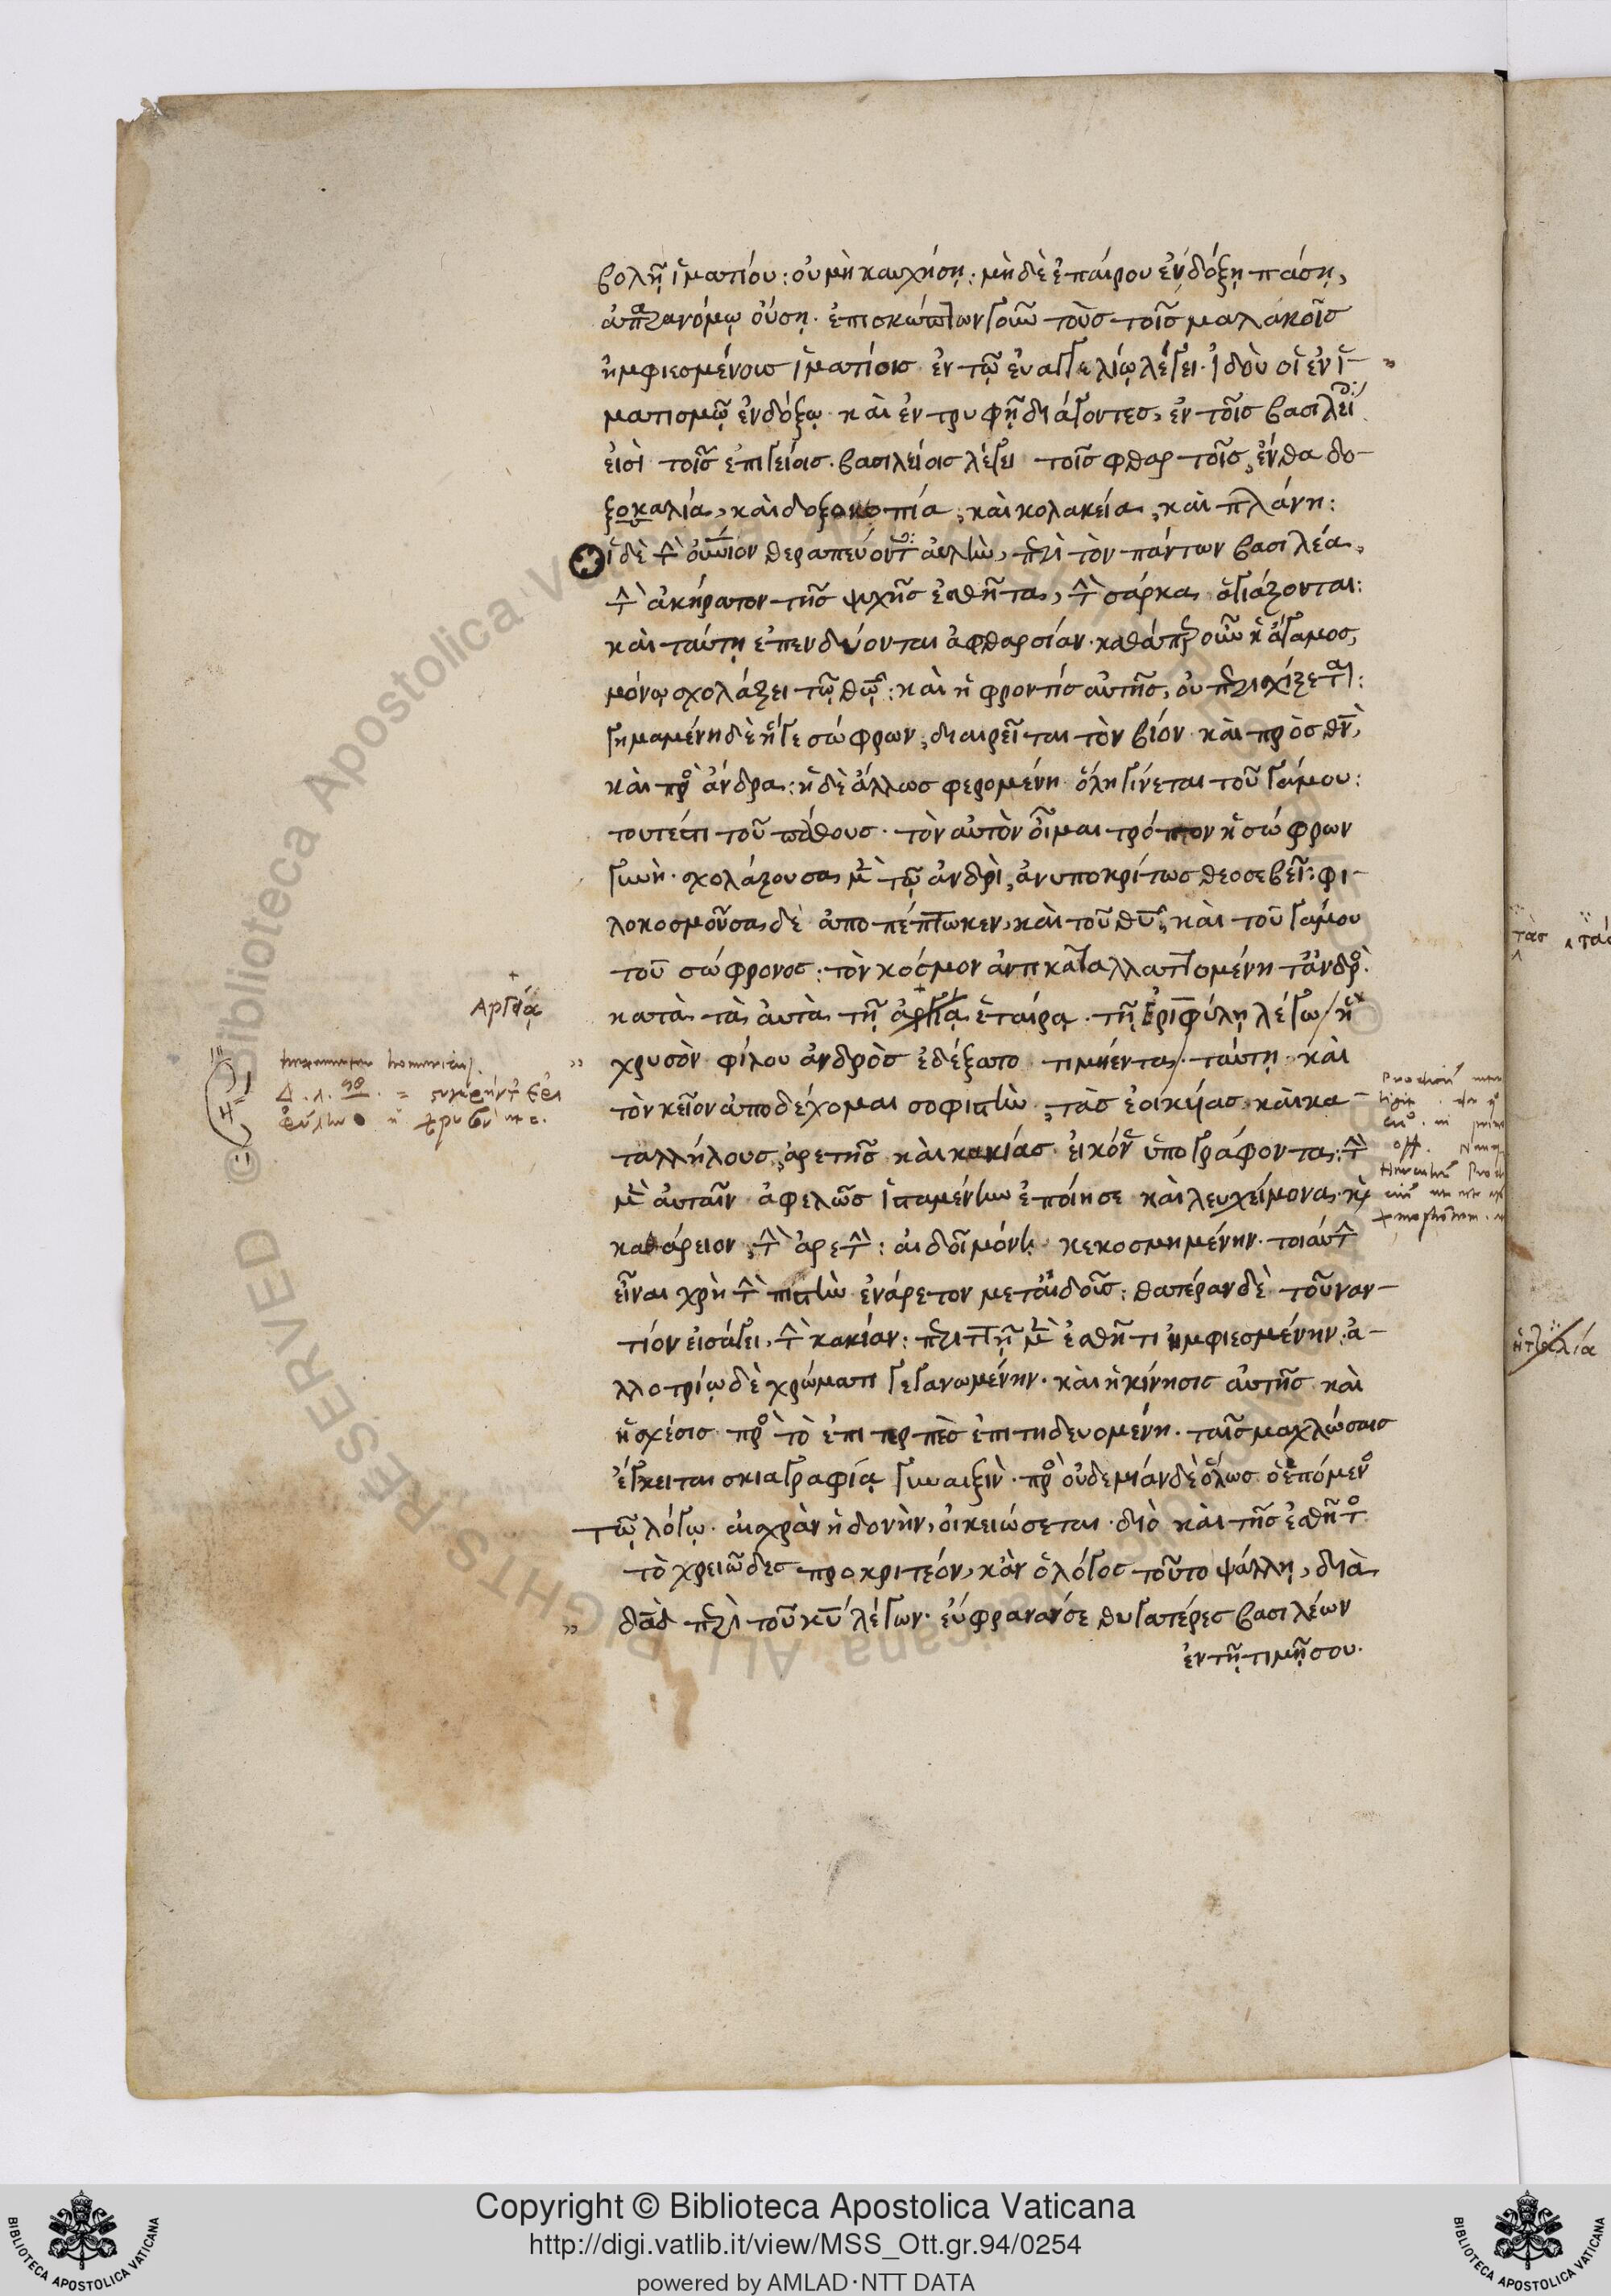 βολῇ ἱματίου: οὐ μὴ καυχήσῃ: μὴ δὲ ἐπαίρου ἐν δόξῃ πάσῃ,
ἁπαρανόμῳ οὔσῃ. ἐπισκώπτων γοῦν τοὺς τοῖς μαλακοῖς
ἠμφιεσμένοις ἱματίοις ἐν τῷ εὐαγγελίῳ λέγει. ἰδοὺ οἱ ἐν ἱ-
ματισμῷ ἐνδόξῳ καὶ ἐν τρυφῇ διάγοντες, ἐν τοῖς βασιλεί
εἰσὶ τοῖς ἐπιγείοις. βασιλείοις λέγει τοῖς φθαρτοῖς, ἔνθα δο-
ξοκαλία, καὶ δοξοκοπία, καὶ κολακεία, καὶ πλάνη:
ἰ δὲ τὴν οὐράνιον θεραπεύοντες αὐλὴν, περὶ τὸν πάντων βασιλέα,
τὴν ἀκήρατον τῆς ψυχῆς ἐσθῆτα, τὴν σάρκα ἁγιάζονται:
καὶ ταύτῃ ἐπενδύονται ἀφθαρσίαν. καθάπερ οὖν ἡ ἄγαμος,
μόνῳ σχολάζει τῷ θῷ: καὶ ἡ φροντὶς αὐτῆς, οὐ περισχίζεται:
γημαμένη δὲ ἥ γε σώφρων, διαιρεῖται τὸν βίον καὶ πρὸς θν,
καὶ πρὸς ἄνδρα: ἡ δὲ ἄλλως φερομένη ὅλη γίνεται τοῦ γάμου:
τουτέστι τοῦ πάθους. τὸν αὐτὸν οἶμαι τρόπον ἡ σώφρων
γυνὴ. σχολάζουσα μὲν τῷ ἀνδρὶ, ἀνυποκρίτως θεοσεβεῖ: φι-
λοκοσμοῦσα δὲ ἀποπέπτωκεν, καὶ τοῦ θυ, καὶ τοῦ γάμου
τοῦ σώφρονος: τὸν κόσμον ἀντικαταλλαττομένη τἀνδρὸς.
Ἀργείᾳ
κατὰ τὰ αὐτὰ τῇ ἀργίᾳ ἑταίρᾳ. τῇ Ἐριφύλῃ λέγω/ ἣ
χρυσὸν φίλου ἀνδρὸς ἐδέξατο τιμήεντα. ταύτῃ καὶ
τὸν κεῖον ἀποδέχομαι σοφιστὴν, τὰς ἐοικυίας καὶ κα-
ταλλήλους, ἀρετῆς καὶ κακίας εἰκόνας ὑπογράφοντα: τὴν
μὲν αὐταῖν ἀφελῶς ἱσταμένην ἐποίησε καὶ λευχείμονα. καὶ
καθάρειον, τὴν ἀρετὴν: αἰδοῖ μόνῃ κεκοσμημένην. τοιαύτην
εἶναι χρὴ τὴν πιστὴν ἐνάρετον μεταἰδοῦς: θατέραν δὲ τοὐναν-
τίον εἰσάγει, τὴν κακίαν: περιττῇ μὲν ἐσθῆτι ἠμφιεσμένην: ἀ-
λλοτρίῳ δὲ χρώματι γεγανωμένην. καὶ ἡ κίνησις αὐτῆς καὶ
ἡ σχέσις πρὸς τὸ ἐπιτερπὲς ἐπιτηδευομένη. ταῖς μαχλώσαις
ἔγκειται σκιαγραφίᾳ γυναιξὶν. πρὸς οὐδεμίαν δὲ ὅλως ὁ ἑπόμενος
τῷ λόγῳ. αἰσχρὰν ἡδονὴν, οἰκειώσεται. διὸ καὶ τῆς ἐσθῆτος
τὸ χρειῶδες προκριτέον, κἂν ὁ λόγος τοῦτο ψάλλῃ, διὰ
δαδ περὶ τοῦ κυ λέγων. εὔφρανάν σε θυγατέρες βασιλέων
ἐν τῇ τιμῇ σου.
Copyright © Biblioteca Apostolica Vaticana
http://digi.vatlib.it/view/MSS_Ott.gr.94/0254
powered by AMLAD·NTT DATA
BIBLIOTECA APOSTOLICA VATICANA
BIBLIOTECA APOSTOLICA VATICANA